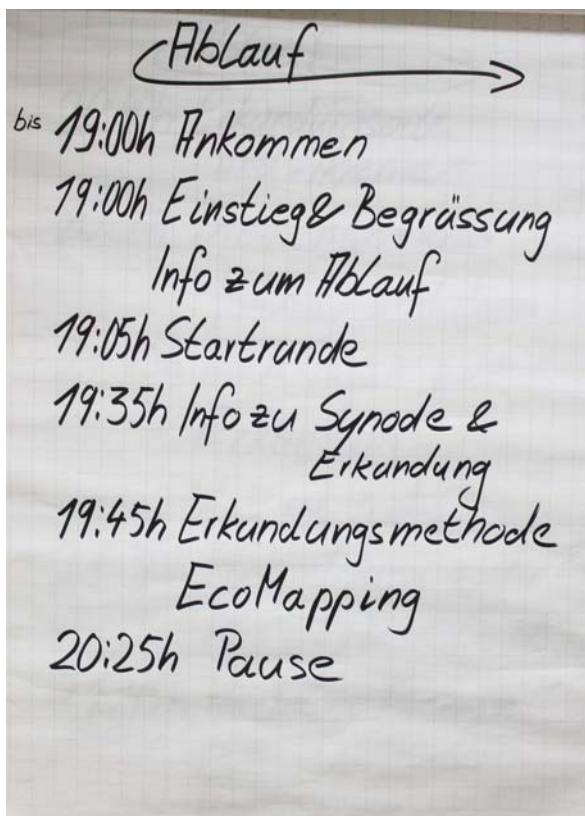 Ablauf
bis 19:00h Ankommen
19:00h Einstieg & Begrüssung
Info zum Ablauf
19:05h Startrunde
19:35h Info zu Synode &
Erkundung
19:45h Erkundungsmethode
EcoMapping
20:25h Pause